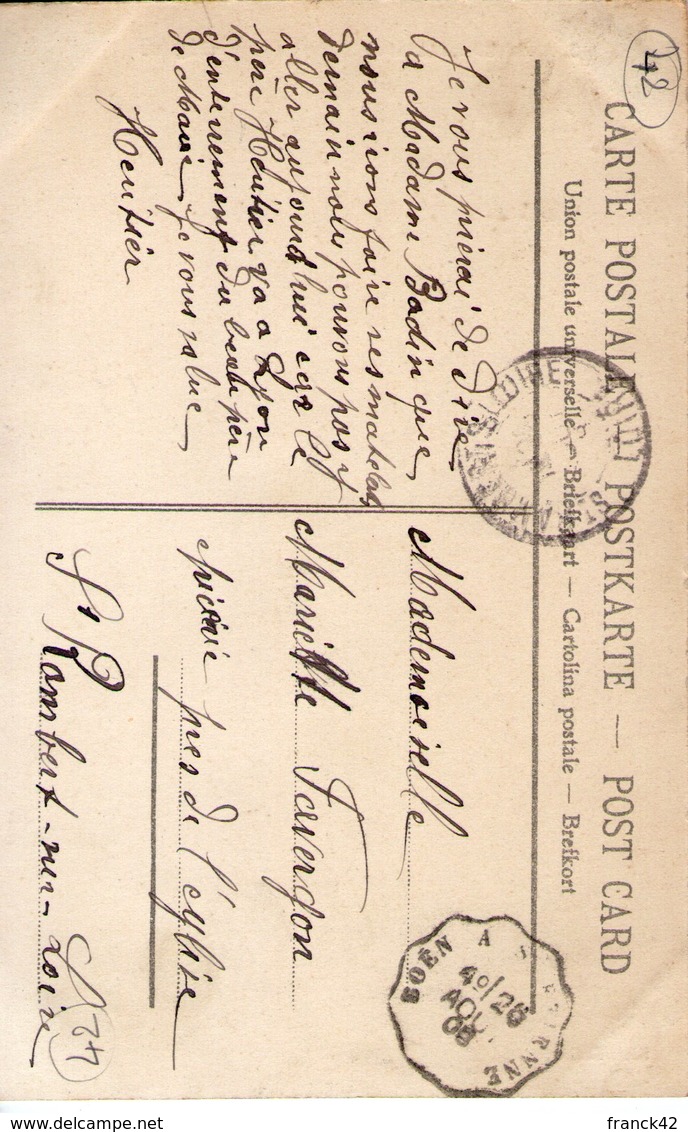 42
CARTE POSTALE — POSTKARTE — POST CARD
Union postale universelle — Briefkaart — Cartolina postale — Brefkort
Je vous pierai de Dire
a Madame Badin que
nous irons faire ses matelas
demain nous pouvons pas y
aller aujourd'hui car le
père Heutier va a Lyon
d'enterrement du beau père
de Marie, Je vous salue
Heutier
Mademoiselle
Mariette Faverjon
près de l'église
St Rambert-sur-Loire
42
LOIRE
BOËN A ST ETIENNE
4º/26
AOU
08
franck42